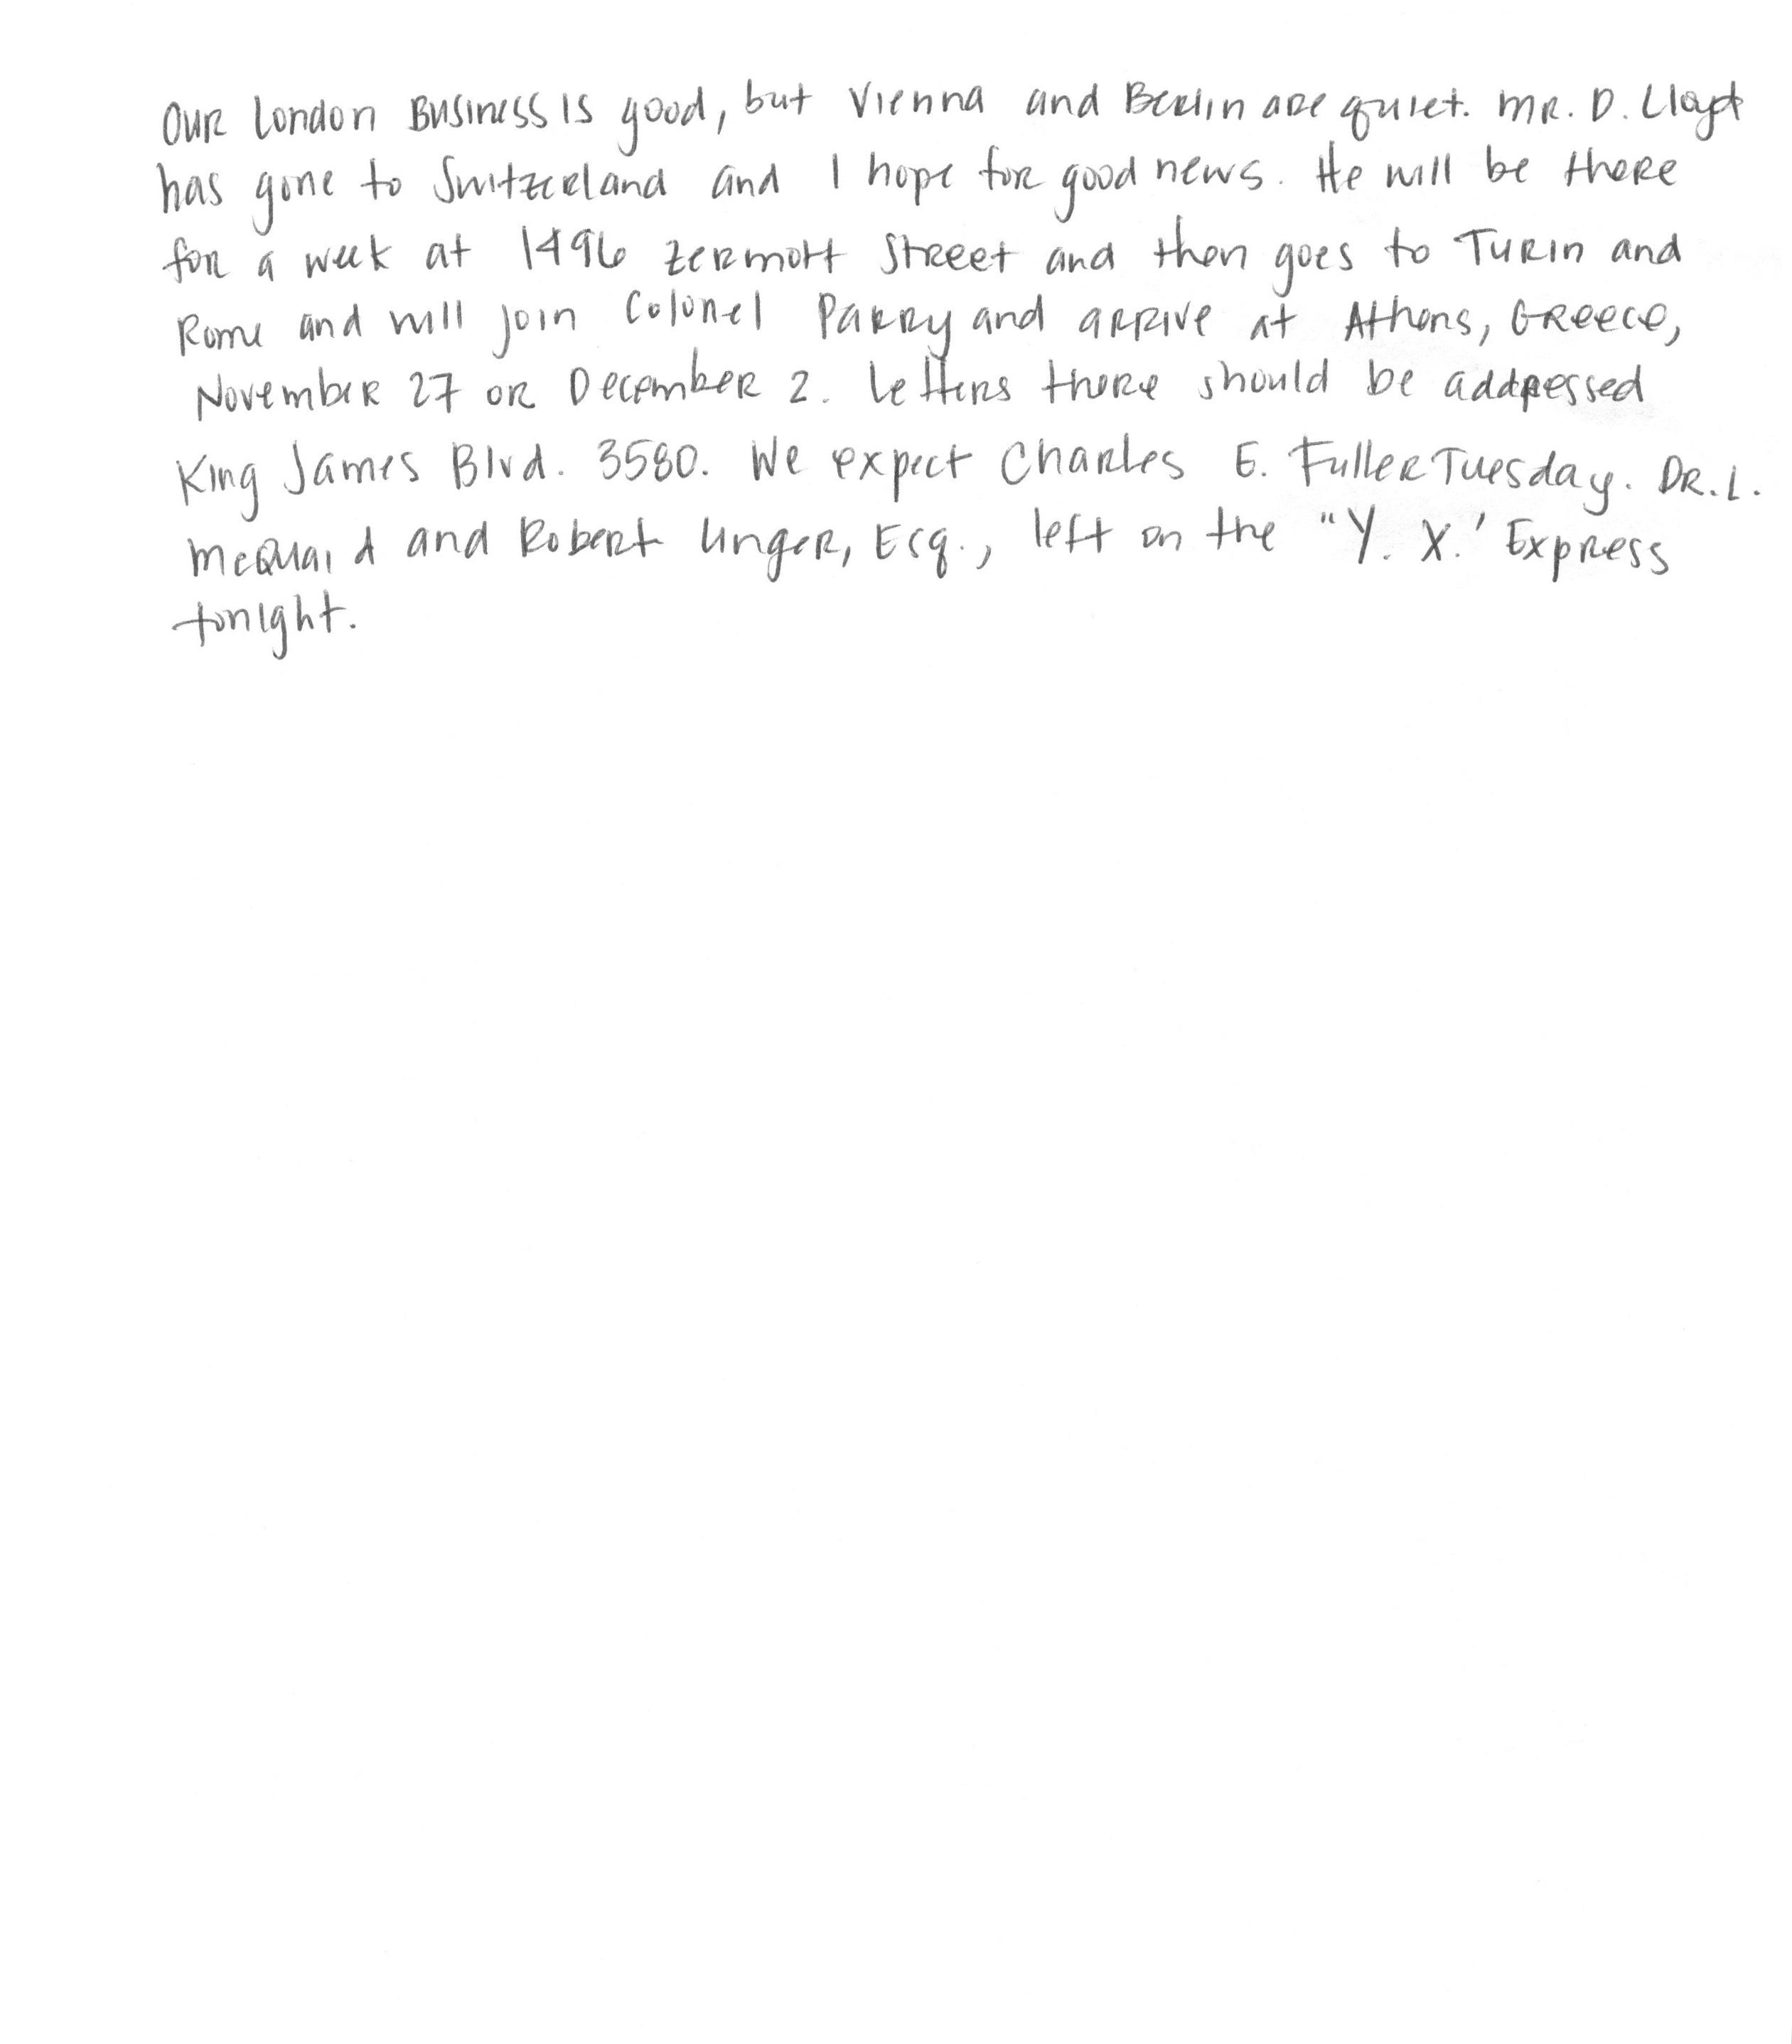 Our London Business is good, but Vienna and Berlin are quiet. Mr. D. Lloyd
has gone to Switzerland and I hope for good news. He will be there
for a week at 1496 Zermott Street and then goes to Turin and
Rome and will join Colonel Parry and arrive at Athens, Greece,
November 27 or December 2. Letters there should be addressed
King James Blvd. 3580. We expect Charles E. Fuller Tuesday. Dr. L.
McQuaid and Robert Unger, Esq., left on the "Y. X.' Express
tonight.